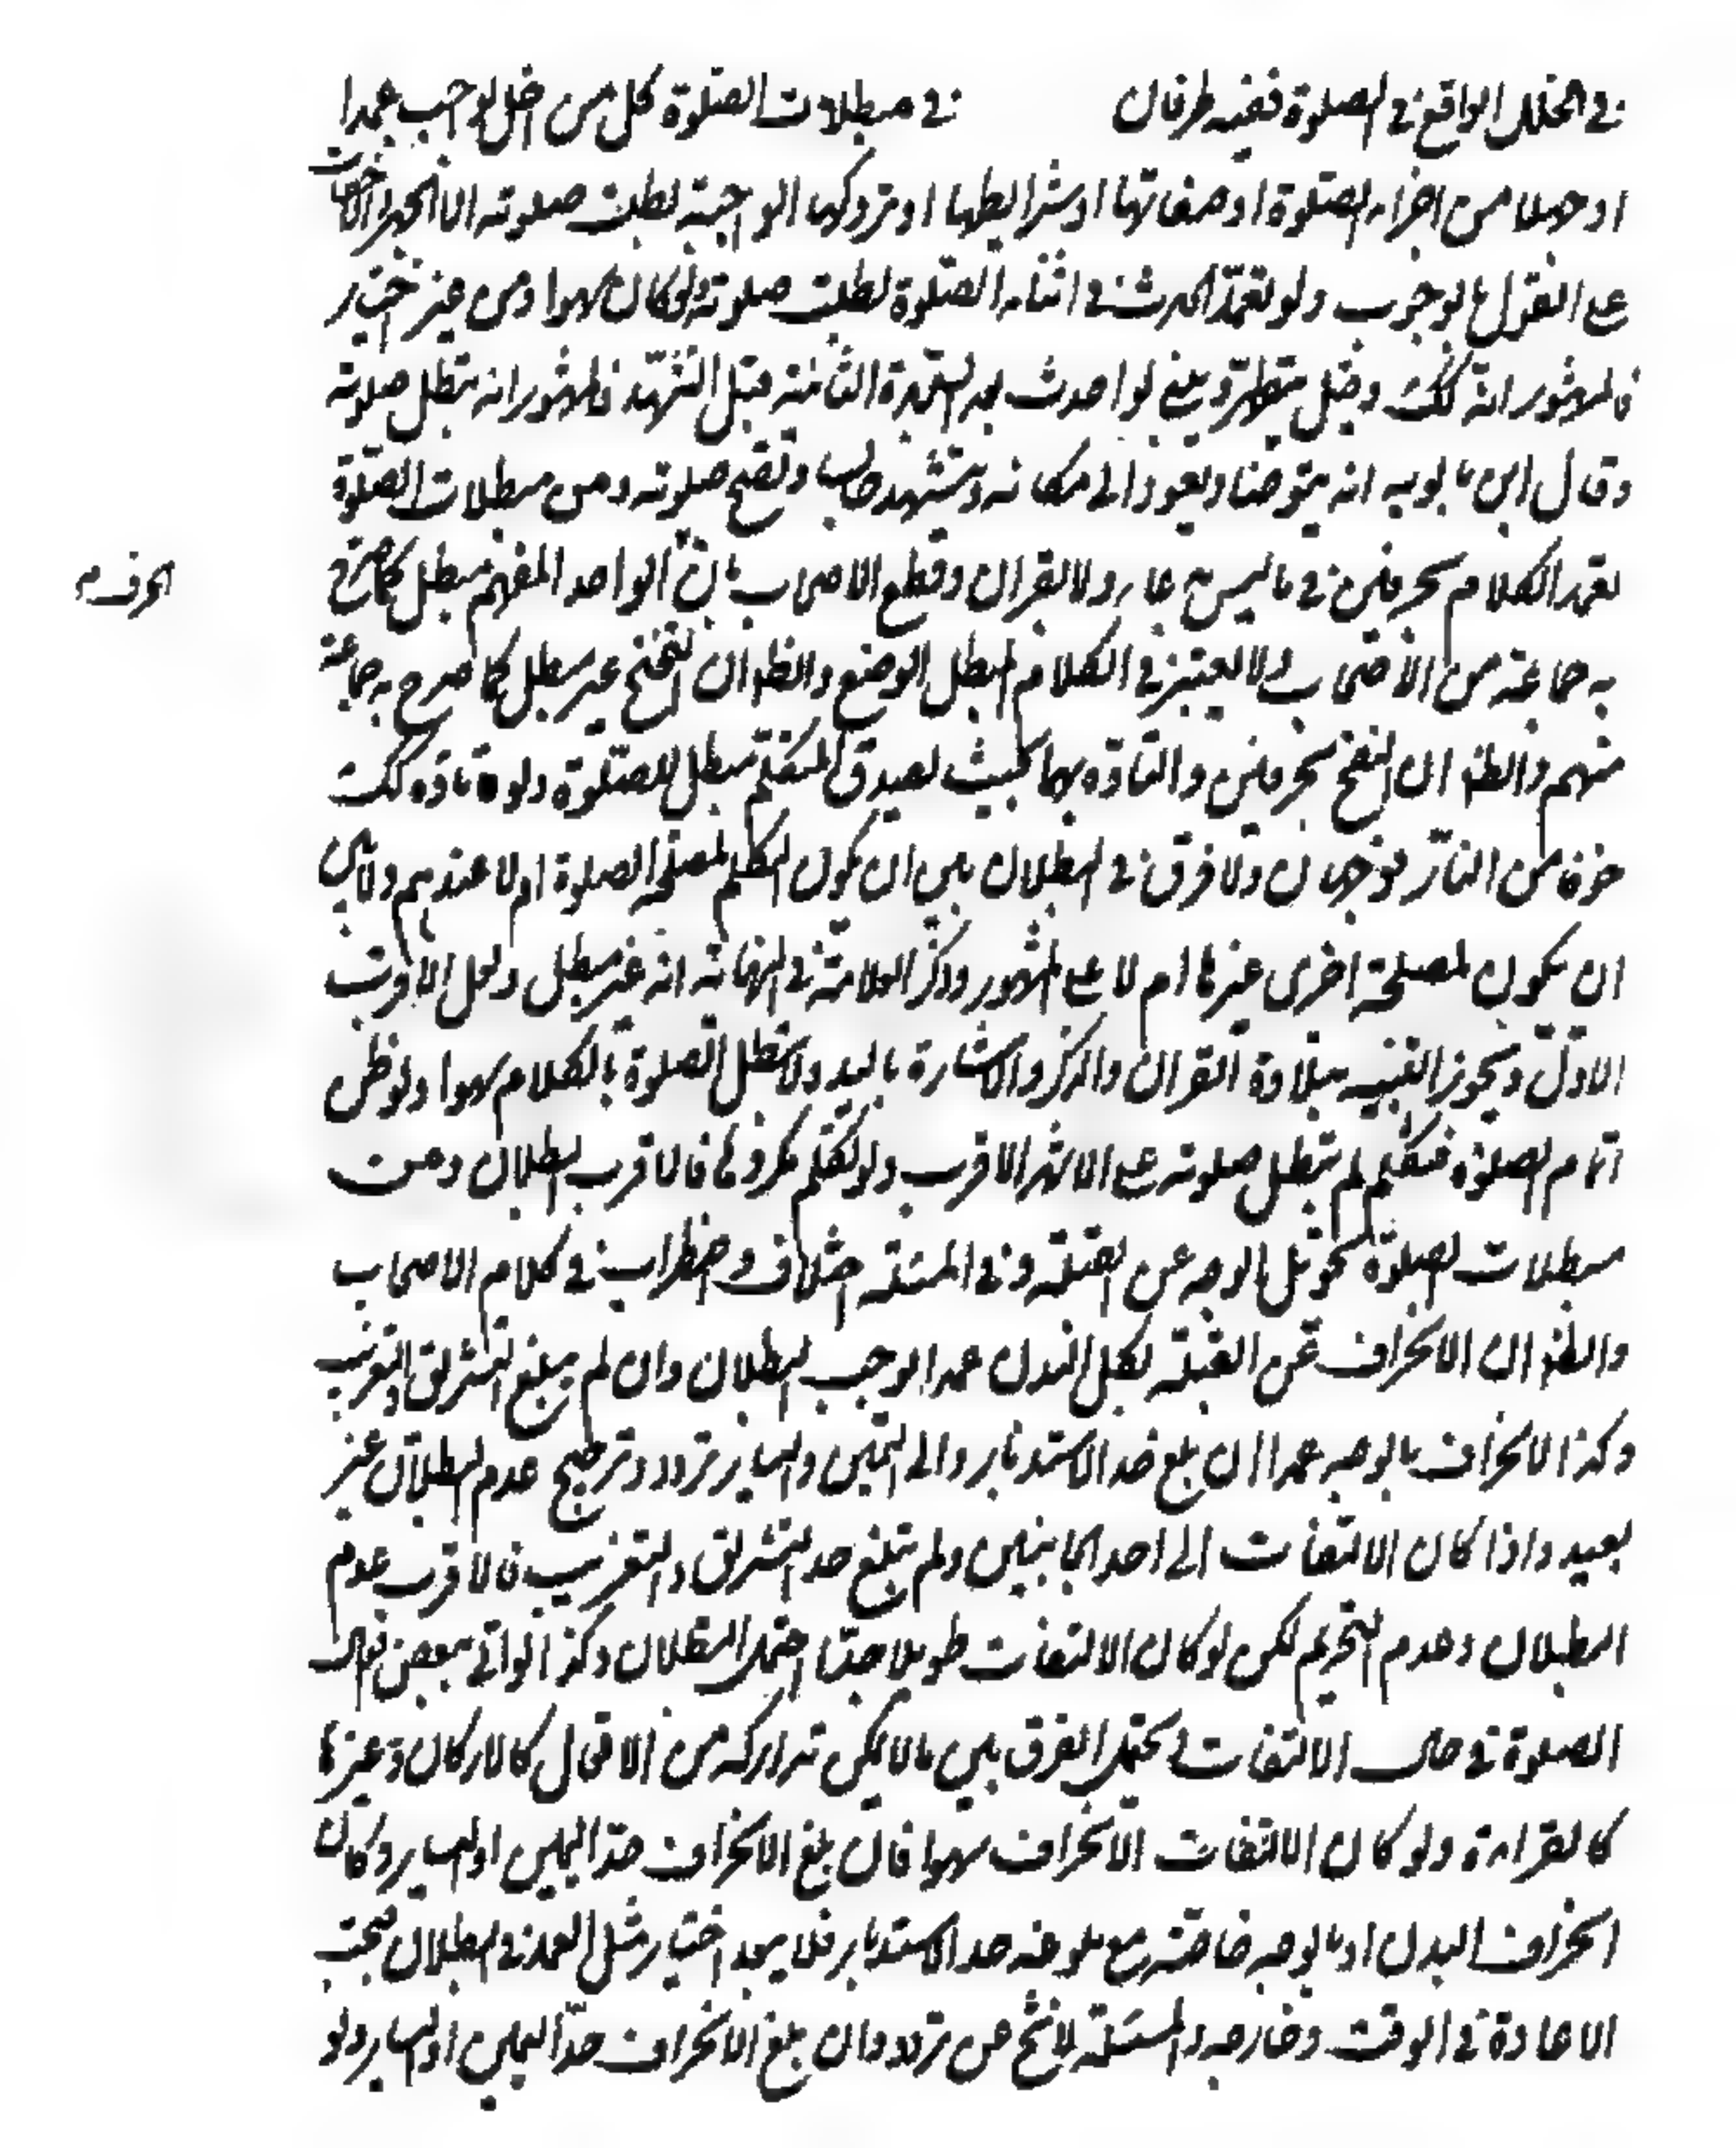 في الخلل الواقع في الصلوة ففيه طرفان في مبطلات الصلوة كل من اخل بواجب عمدا
او جهلا من اجزاء الصلوة او صفاتها او شرايطها او تروكها الواجبة بطلت صلوته الا الجهر والاخفات
على القول بالوجوب ولو تعمد الحدث في اثناء الصلوة بطلت صلوته ولو كان سهوا او من غير اختيار
فالمشهور انه كك وقيل يتطهر ويبني لو احدث بعد السجدة الثانية قبل التشهد فالمشهور انه تبطل صلوته
وقال ابن بابويه انه يتوضا ويعود الى مكانه ويتشهد جالسا وتصح صلوته ومن مبطلات الصلوة
تعمد الكلام بحرفين في ما ليس بدعاء ولا القران وقطع الاصحاب بان الواحد المفهم مبطل كما صرح
الحرف م
به جماعة من الاصحاب ولا يعتبر في الكلام المبطل الوضع والظ ان التنحنح غير مبطل كما صرح به جماعة
منهم والظ ان النفخ بحرفين والتاوه بهما بحيث يصدق التكلم مبطل للصلوة ولو تاوه كك
خوفا من النار فوجهان ولا فرق في البطلان بين ان يكون التكلم لمصلحة الصلوة ام لا عندهم ولا بين
ان يكون لمصلحة اخرى غيرها ام لا على المشهور وذكر العلامة في النهاية انه غير مبطل ولعل الاقرب
الاول ويجوز التنبيه بتلاوة القران والذكر والاشارة باليد ولا تبطل الصلوة بالكلام سهوا ولو ظن
اتمام الصلوة فتكلم لم تبطل صلوته على الاشهر الاقرب ولو تكلم مكروها فالاقرب البطلان ومن
مبطلات الصلوة تحويل الوجه عن القبلة وفي المسئلة اختلاف واضطراب في كلام الاصحاب
والظ ان الانحراف عن القبلة بكل البدن عمدا يوجب البطلان وان لم يبلغ التشريق والتغريب
وكذا الانحراف بالوجه عمدا ان بلغ حد الاستدبار والى اليمين واليسار تردد وترجيح عدم البطلان غير
بعيد واذا كان الالتفات الى احد الجانبين ولم تبلغ حد التشريق والتغريب فالاقرب عدم
البطلان وعدم التحريم لكن لو كان الالتفات طويلا جدا احتمل البطلان وكذا لو اتى ببعض افعال
الصلوة في حال الالتفات ويحتمل الفرق بين ما لا يمكن تداركه من الافعال كالاركان وغيرها
كالقراءة ولو كان الالتفات الانحراف سهوا فان بلغ الانحراف حد اليمين او اليسار وكان
انحراف البدن او بالوجه خاصة مع بلوغه حد الاستدبار فلا يبعد اختيار مثل العمد في البطلان فيجب
الاعادة في الوقت وخارجه والمسئلة لا يخ عن تردد وان بلغ الانحراف حد اليمين او اليسار ولو